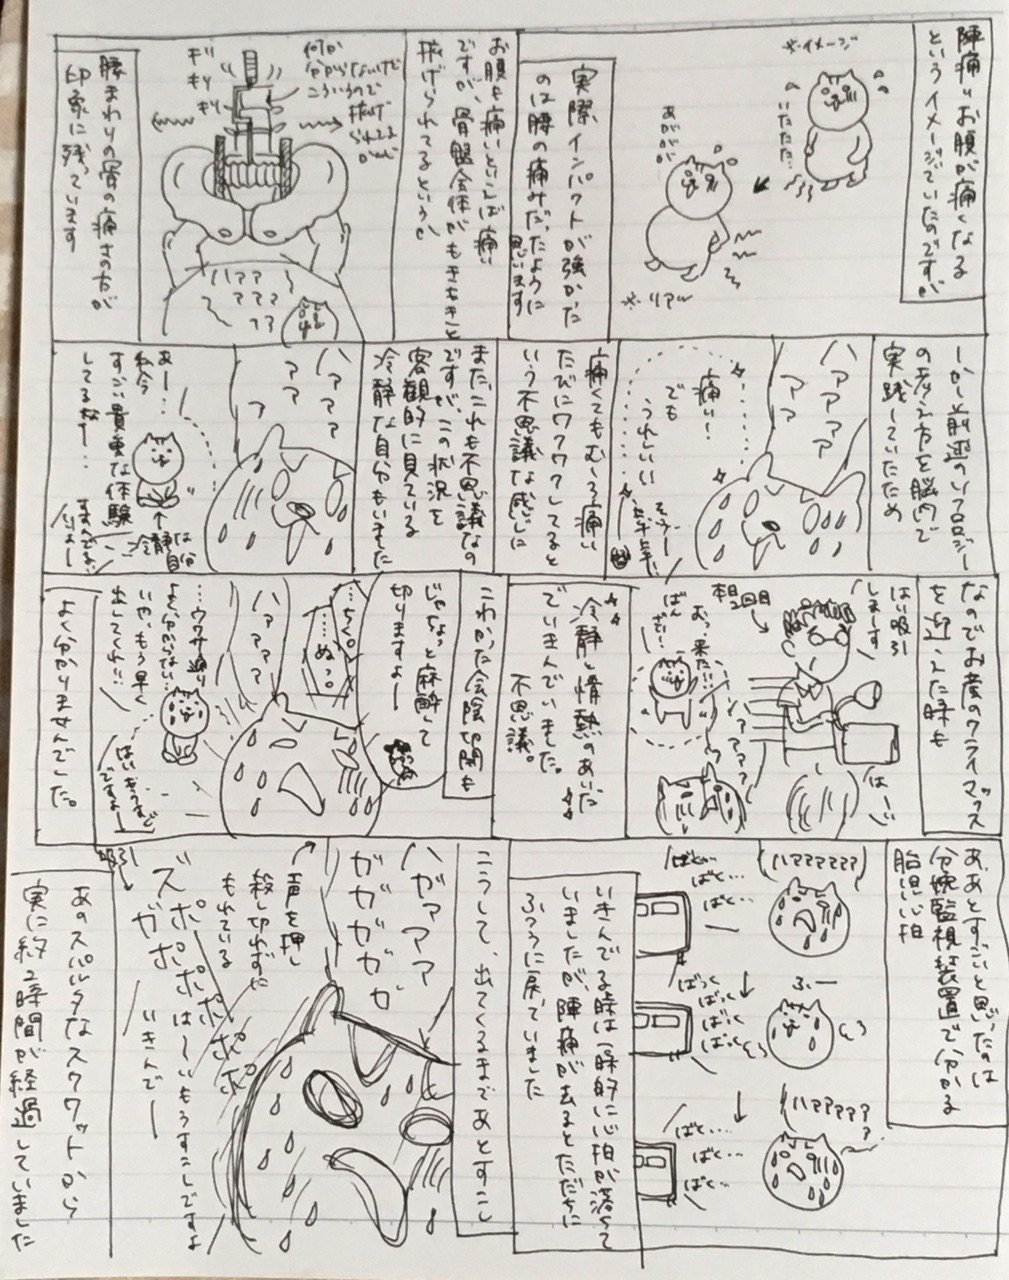 陣痛＝お腹が痛くなる
というイメージでいたのですが
※イメージ
いたたた…
あががが
※リアル
実際インパクトが強かった
のは腰の痛みだったように
思います
お腹も痛いといえば痛い
ですが、骨盤全体がもぎもぎと
拡げられてるというか
何か
分からないけど
こういうので
拡げ
られてる
かんじ
ギリ
ギリ
ギリ
ハァァ
ァァァ
ァァ
腰まわりの骨の痛さの方が
印象に残っています
しかし前述のいてロジー
の考え方を脳内で
実践していたため
ハァァァァ
ァァァ
痛い…
でも
うれしいい
痛くてもむしろ痛い
たびにワクワクしてると
いう不思議な感じに
また、これも不思議なの
ですが、この状況を
客観的に見ている
冷静な自分もいました
ハァァァ
ァァ
ァ
あー…
私今
すごい貴重な体験
してるなー…
冷静な自分
なのでお産のクライマックス
を迎えた時も
はい吸引
しまーす
本日2回目
はーい
おっ来た…
ばん
ざーい
ァァァァ
冷静と情熱のあいだ
でいきんでいました。
不思議。
こわかった会陰切開も
じゃちょっと麻酔して
切りますよー
…ちく。
……ぬっ。
ハァァァァ
…ウワサ通り
よく分からない…
いいからもう早く
出してくれい…
よく分かりませんでした。
あ、あとすごいと思ったのは
分娩監視装置で分かる
胎児心拍
(ハァァァァァァ)
ばく…
ばく…
ばく…
ふー
ばっく
ばっく
ばっく
ばっく
(ハァァァァァ
ばく…
ばく…
ばく…
いきんでる時は一時的に心拍が落ちて
いましたが、陣痛が去るとただちに
ふつうに戻っていました
こうして、出てくるまであとすこし
ハガァァァ
ガガガガガ
声を押し
殺し切れずに
もれている
吸引
ズポポポポポポポ
ガポ
は〜いもうすこしですよ
いきんでー
あのスパルタなスクワットから
実に約2時間が経過していました